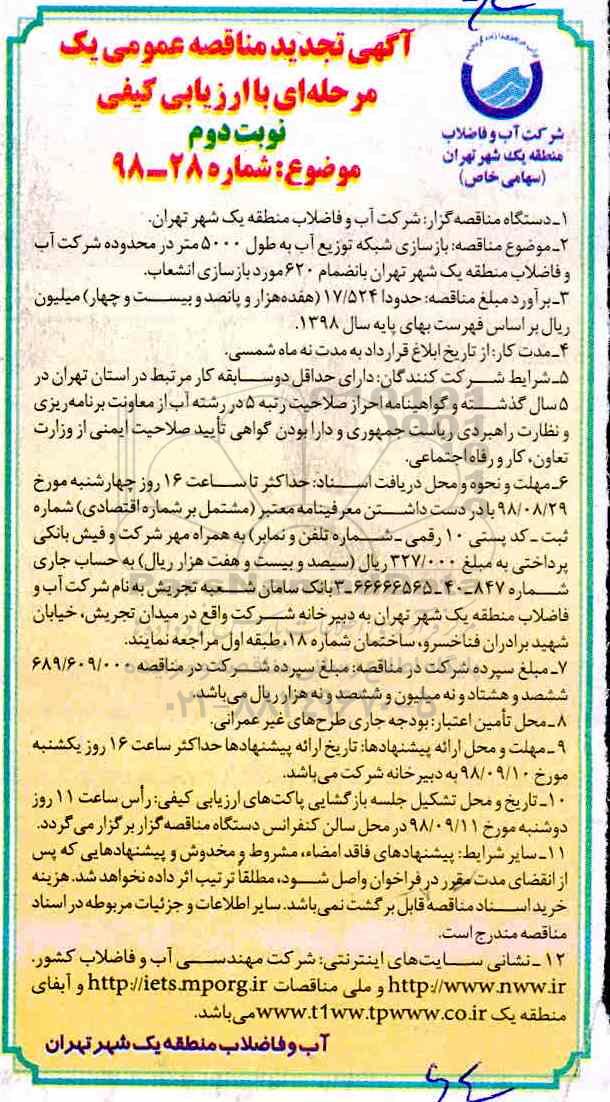 آگهی تجدید مناقصه عمومی یک
مرحله‌ای با ارزیابی کیفی
نوبت دوم
موضوع: شماره ۲۸-۹۸
شرکت آب و فاضلاب
منطقه یک شهر تهران
(سهامی خاص)
۱ـ دستگاه مناقصه‌گزار: شرکت آب و فاضلاب منطقه یک شهر تهران.
۲ـ موضوع مناقصه: بازسازی شبکه توزیع آب به طول ۵۰۰۰ متر در محدوده شرکت آب
و فاضلاب منطقه یک شهر تهران بانضمام ۶۲۰ مورد بازسازی انشعاب.
۳ـ برآورد مبلغ مناقصه: حدودا ۱۷/۵۲۴ (هفده‌هزار و پانصد و بیست و چهار) میلیون
ریال بر اساس فهرست بهای پایه سال ۱۳۹۸.
۴ـ مدت کار: از تاریخ ابلاغ قرارداد به مدت نه ماه شمسی.
۵ـ شرایط شرکت کنندگان: دارای حداقل دو سابقه کار مرتبط در استان تهران در
۵ سال گذشته و گواهینامه احراز صلاحیت رتبه ۵ در رشته آب از معاونت برنامه‌ریزی
و نظارت راهبردی ریاست جمهوری و دارا بودن گواهی تأیید صلاحیت ایمنی از وزارت
تعاون، کار و رفاه اجتماعی.
۶ـ مهلت و نحوه و محل دریافت اسناد: حداکثر تا ساعت ۱۶ روز چهارشنبه مورخ
۹۸/۰۸/۲۹ با در دست داشتن معرفینامه معتبر (مشتمل بر شماره اقتصادی) شماره
ثبت ـ کد پستی ۱۰ رقمی ـ شماره تلفن و نمابر) به همراه مهر شرکت و فیش بانکی
پرداختی به مبلغ ۳۲۷/۰۰۰ ریال (سیصد و بیست و هفت هزار ریال) به حساب جاری
شماره ۸۴۷-۴۰-۶۶۶۶۶۵۶۵-۳ بانک سامان شعبه تجریش به نام شرکت آب و
فاضلاب منطقه یک شهر تهران به دبیرخانه شرکت واقع در میدان تجریش، خیابان
شهید برادران فناخسرو، ساختمان شماره ۱۸، طبقه اول مراجعه نمایند.
۷ـ مبلغ سپرده شرکت در مناقصه: مبلغ سپرده شرکت در مناقصه ۶۸۹/۶۰۹/۰۰۰
ششصد و هشتاد و نه میلیون و ششصد و نه هزار ریال می‌باشد.
۸ـ محل تأمین اعتبار: بودجه جاری طرح‌های غیر عمرانی.
۹ـ مهلت و محل ارائه پیشنهادها: تاریخ ارائه پیشنهادها حداکثر ساعت ۱۶ روز یکشنبه
مورخ ۹۸/۰۹/۱۰ به دبیرخانه شرکت می‌باشد.
۱۰ـ تاریخ و محل تشکیل جلسه بازگشایی پاکت‌های ارزیابی کیفی: رأس ساعت ۱۱ روز
دوشنبه مورخ ۹۸/۰۹/۱۱ در محل سالن کنفرانس دستگاه مناقصه‌گزار برگزار می‌گردد.
۱۱ـ سایر شرایط: پیشنهادهای فاقد امضاء، مشروط و مخدوش و پیشنهادهایی که پس
از انقضای مدت مقرر در فراخوان واصل شود، مطلقاً ترتیب اثر داده نخواهد شد. هزینه
خرید اسناد مناقصه قابل برگشت نمی‌باشد. سایر اطلاعات و جزئیات مربوطه در اسناد
مناقصه مندرج است.
۱۲ـ نشانی سایت‌های اینترنتی: شرکت مهندسی آب و فاضلاب کشور.
http://www.nww.ir و ملی مناقصات http://iets.mporg.ir و آبفای
منطقه یک www.t1ww.tpwww.co.ir می‌باشد.
آب و فاضلاب منطقه یک شهر تهران